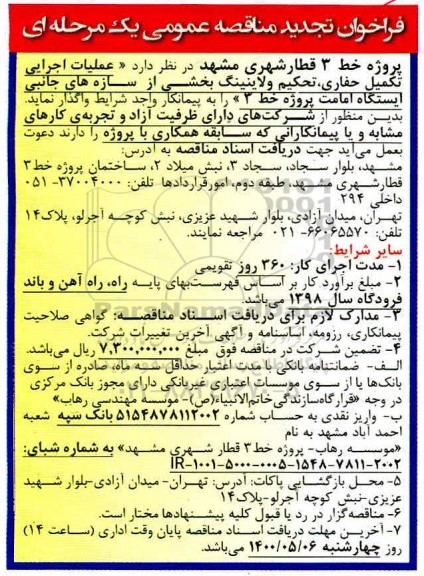 فراخوان تجدید مناقصه عمومی یک مرحله ای
پروژه خط ۳ قطارشهری مشهد در نظر دارد « عملیات اجرایی
تکمیل حفاری،تحکیم ولاینینگ بخشی از سازه های جانبی
ایستگاه امامت پروژه خط ۳ » را به پیمانکار واجد شرایط واگذار نماید.
بدین منظور از شرکت‌های دارای ظرفیت آزاد و تجربه‌ی کارهای
مشابه و یا پیمانکارانی که سابقه همکاری با پروژه را دارند دعوت
بعمل می‌آید جهت دریافت اسناد مناقصه به آدرس:
مشهد، بلوار سجاد، سجاد ۳، نبش میلاد ۲، ساختمان پروژه خط۳
قطارشهری مشهد، طبقه دوم، امورقراردادها تلفن: ۳۷۰۰۴۰۰۰-۰۵۱
داخلی ۲۹۴
تهران، میدان آزادی، بلوار شهید عزیزی، نبش کوچه آجرلو، پلاک۱۴
تلفن: ۶۶۰۶۵۵۷۰-۰۲۱ مراجعه نمایند.
سایر شرایط:
۱- مدت اجرای کار: ۳۶۰ روز تقویمی
۲- مبلغ برآورد کار بر اساس فهرست‌بهای پایه راه، راه آهن و باند
فرودگاه سال ۱۳۹۸ می‌باشد.
۳- مدارک لازم برای دریافت اسناد مناقصه: گواهی صلاحیت
پیمانکاری، رزومه، اساسنامه و آگهی آخرین تغییرات شرکت.
۴- تضمین شرکت در مناقصه فوق مبلغ ۷,۳۰۰,۰۰۰,۰۰۰ ریال می‌باشد.
الف- ضمانتنامه بانکی با مدت اعتبار حداقل سه ماه، صادره از سوی
بانک‌ها یا از سوی موسسات اعتباری غیربانکی دارای مجوز بانک مرکزی
در وجه «قرارگاه‌سازندگی خاتم‌الانبیاء(ص)- موسسه مهندسی رهاب»
ب- واریز نقدی به حساب شماره ۵۱۵۴۸۷۸۱۱۲۰۰۲ بانک سپه شعبه
احمد آباد مشهد به نام
«موسسه رهاب- پروژه خط۳ قطار شهری مشهد» به شماره شبای:
IR-۱۰۰۱-۵۰۰۰-۰۰۰۵-۱۵۴۸-۷۸۱۱-۲۰۰۲
۵- محل بازگشایی پاکات: آدرس: تهران- میدان آزادی-بلوار شهید
عزیزی-نبش کوچه آجرلو-پلاک۱۴
۶- مناقصه‌گزار در رد یا قبول کلیه پیشنهادها مختار است.
۷- آخرین مهلت دریافت اسناد مناقصه پایان وقت اداری (ساعت ۱۴)
روز چهارشنبه ۱۴۰۰/۰۵/۰۶ می‌باشد.